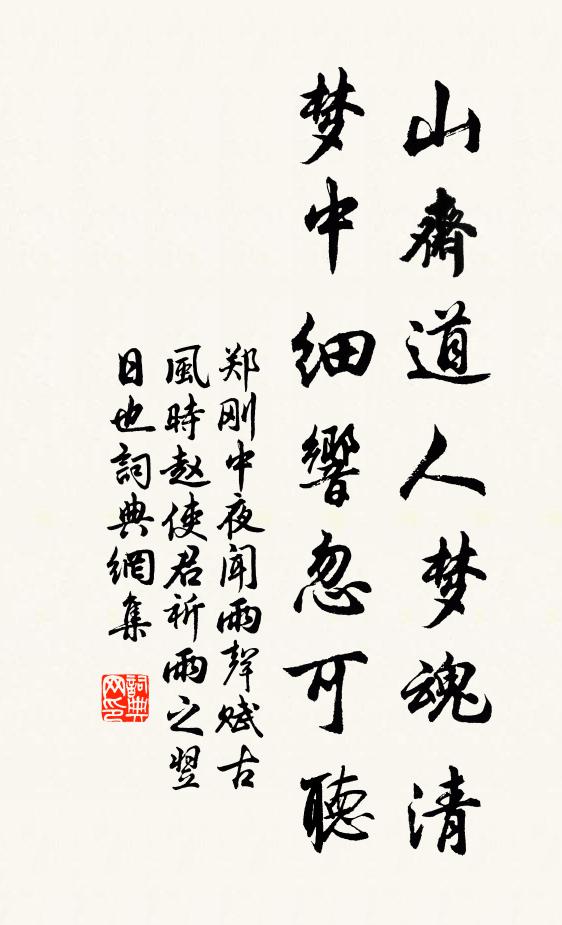 山齋道人梦魂清
梦中细響忽可聽
郑刚中夜闻雨聲赋古
風時赵使君祈雨之翌
日也詞典網集
詞典网印